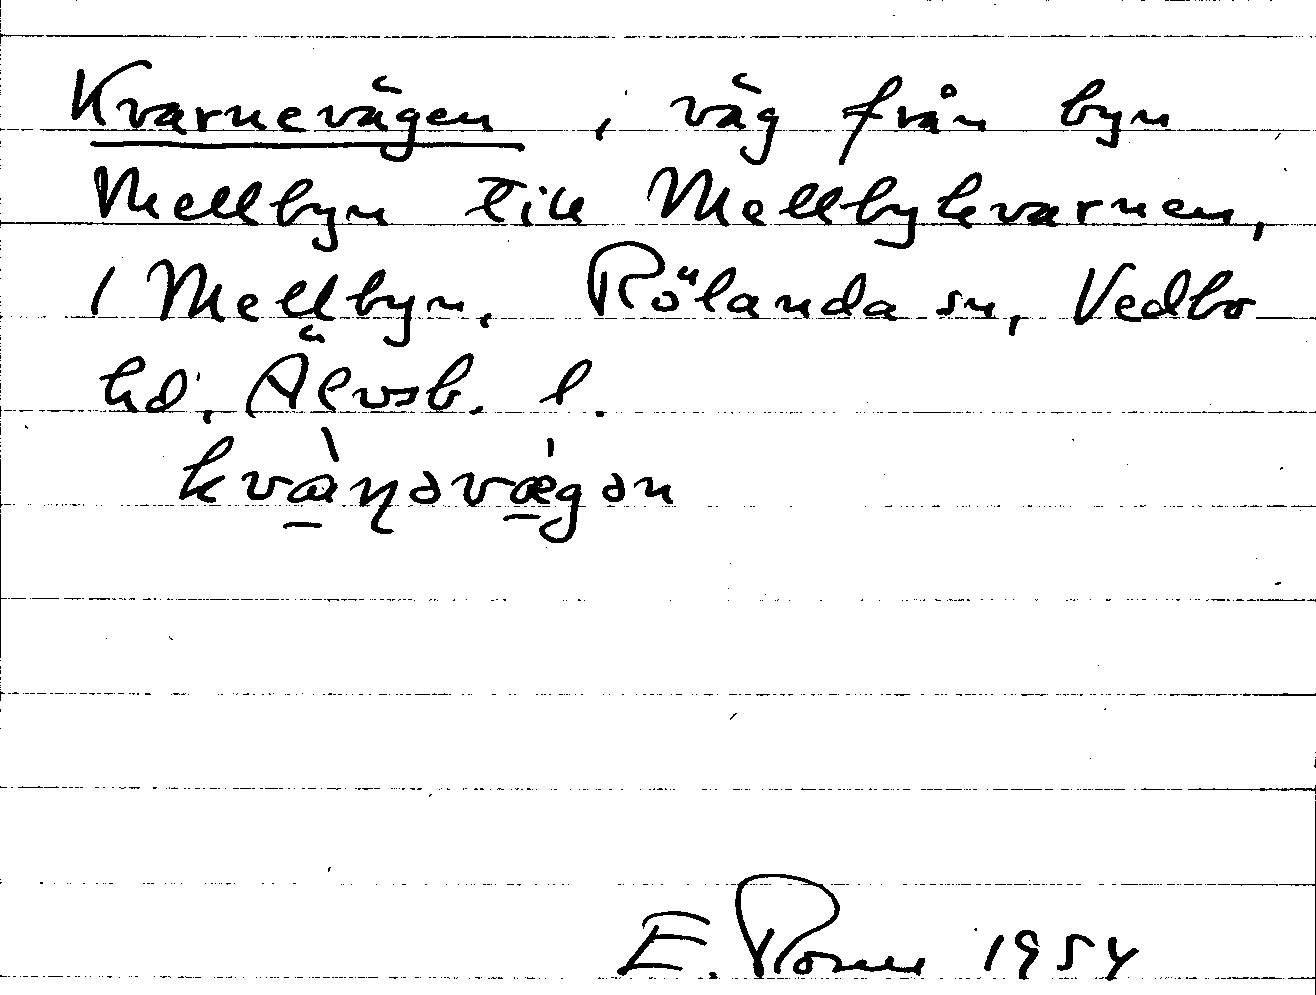 Kvarnevägen, väg från byn
Mellbyn till Mellbykvarnen,
1 Mellbyn. Rölanda sn, Vedbo
hd. Älvsb. l.
kvànəvǽgən
E. 1954